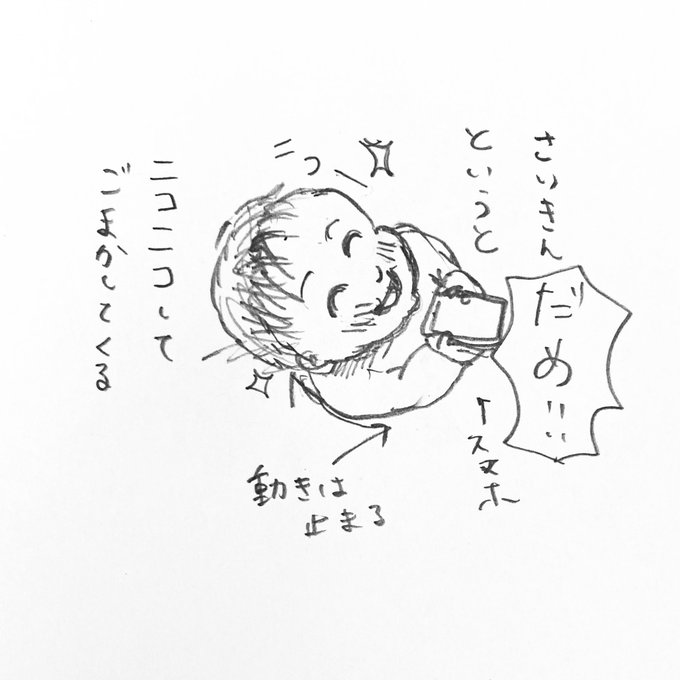 さいきん
だめ!!
というと
↑スマホ
ニコッ
動きは
止まる
ニコニコして
ごまかしてくる